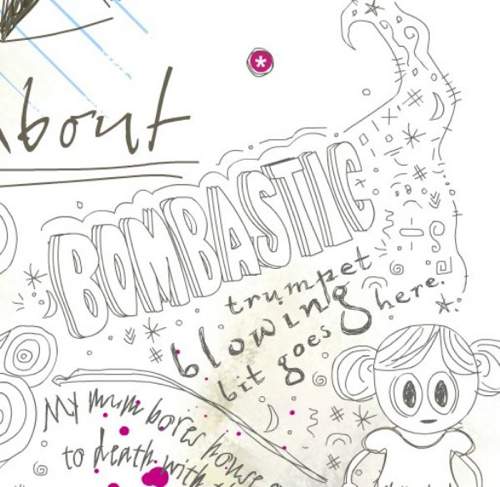 About
BOMBASTIC
trumpet
blowing
bit goes here.
My mum bores house
to death with